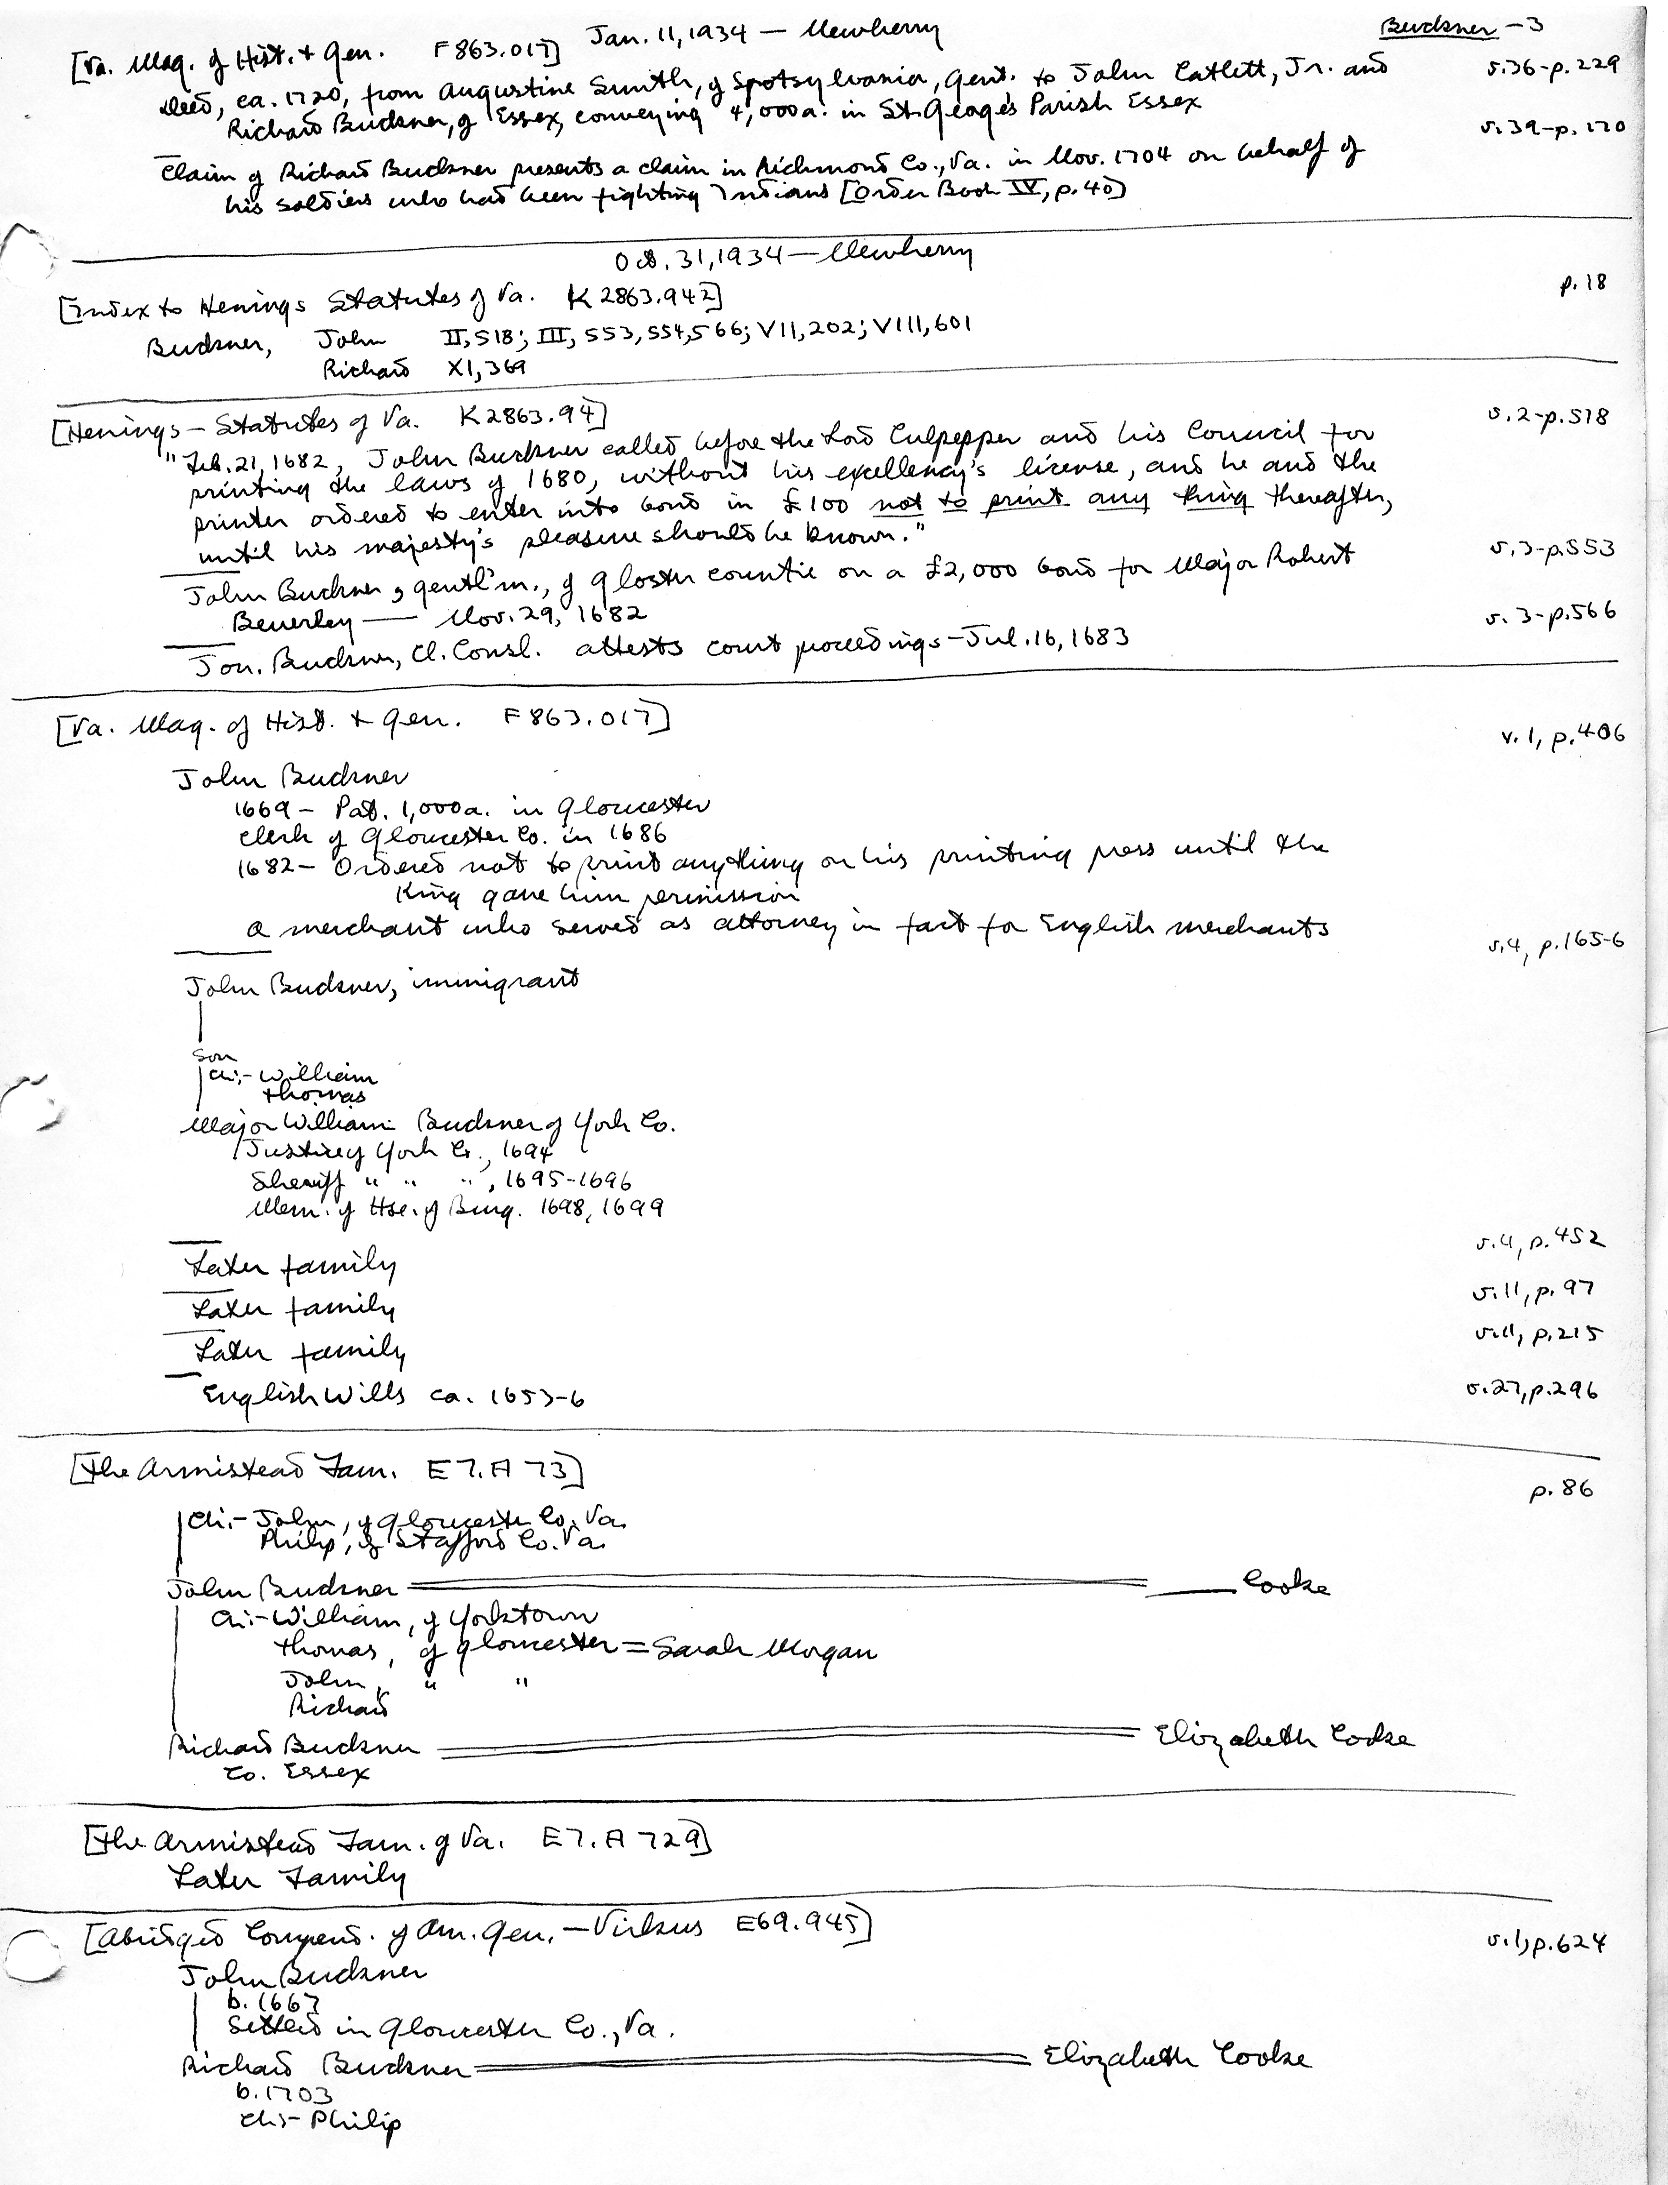 Jan. 11, 1934 — Newberry
Buckner — 3
[Va. Mag. of Hist. & Gen. F863.017]
Deed, ca. 1720, from Augustine Smith, of Spotsylvania, Gent. to John Catlett, Jr. and v.36-p.229
Richard Buckner, of Essex, conveying 4,000a. in St. George's Parish Essex
Claim of Richard Buckner presents a claim in Richmond Co., Va. in Nov. 1704 on behalf of v.39-p.170
his soldiers who had been fighting Indians [Order Book IV, p.40]
Oct. 31, 1934 — Newberry
[Index to Henings Statutes of Va. K2863.942] p.18
Buckner, John II, 518; III, 553, 554, 566; VII, 202; VIII, 601
Richard XI, 369
[Henings — Statutes of Va. K2863.94] v.2-p.518
"Feb. 21, 1682, John Buckner called before the Lord Culpepper and his Council for
printing the laws of 1680, without his excellency's license, and he and the
printer ordered to enter into bond in £100 not to print any thing thereafter,
until his majesty's pleasure should be known."
John Buckner, gentl'm., of Gloster countie on a £2,000 bond for Major Robert v.3-p.553
Beverley — Nov. 29, 1682
Jon. Buckner, Cl. Consl. attests court proceedings - Jul. 16, 1683 v.3-p.566
[Va. Mag. of Hist. & Gen. F863.017]
v.1, p.406
John Buckner
1669 - Pat. 1,000a. in Gloucester
Clerk of Gloucester Co. in 1686
1682 - Ordered not to print anything on his printing press until the
King gave him permission
a merchant who served as attorney in fact for English merchants
John Buckner, immigrant v.4, p.165-6
son
Ch:- William
Thomas
Major William Buckner of York Co.
Justice of York Co., 1694
Sheriff " " ", 1695-1696
Mem. of Hse. of Burg. 1698, 1699
Later family v.4, p.452
Later family v.11, p.97
Later family v.11, p.215
English Wills ca. 1653-6 v.27, p.296
[The Armistead Fam. E7.A73]
p.86
Ch:- John, of Gloucester Co. Va.
Philip, of Stafford Co. Va.
John Buckner ═ ____ Cooke
Ch:- William, of Yorktown
Thomas, of Gloucester = Sarah Morgan
John, " "
Richard
Richard Buckner ═ Elizabeth Cooke
Co. Essex
[The Armistead Fam. of Va. E7.A729]
Later Family
[Abridged Compend. of Am. Gen. — Virkus E69.945] v.1, p.624
John Buckner
b. 1667
Settled in Gloucester Co., Va.
Richard Buckner ═ Elizabeth Cooke
b. 1703
Ch:- Philip